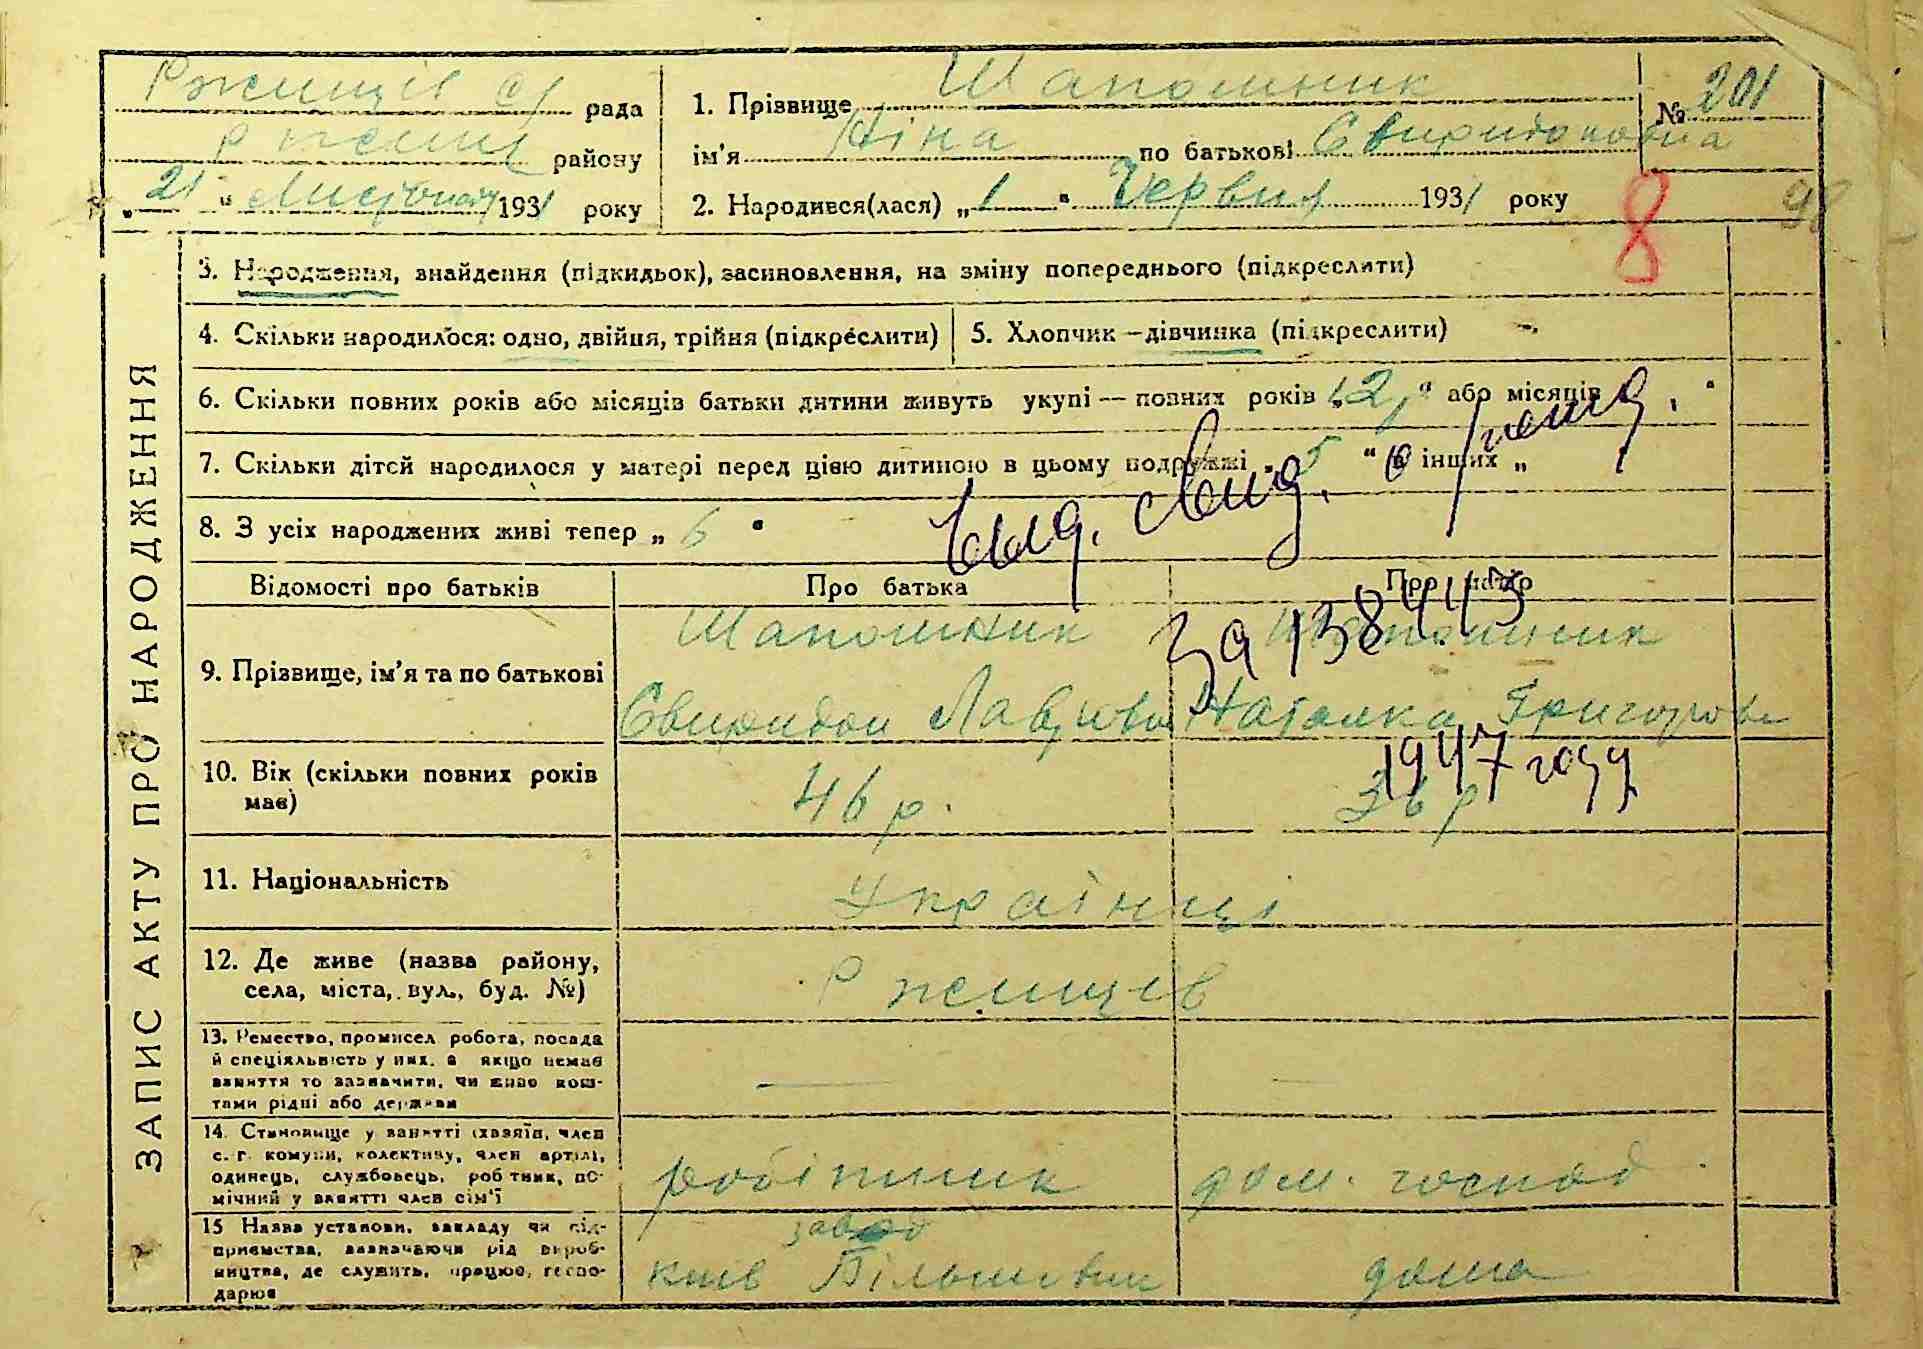 Ржищів с/ рада
Ржищ району
„21" Листопад 1931 року
1. Прізвище Шапошник
ім'я Ніна по батькові Свиридоновна
2. Народився(лася) „1" Червня 1931 року
№ 201
8
98
ЗАПИС АКТУ ПРО НАРОДЖЕННЯ
3. Народження, знайдення (підкидьок), засиновлення, на зміну попереднього (підкреслити)
4. Скільки народилося: одно, двійня, трійня (підкреслити)
5. Хлопчик — дівчинка (підкреслити)
6. Скільки повних років або місяців батьки дитини живуть укупі — повних років „12" або місяців „ "
7. Скільки дітей народилося у матері перед цією дитиною в цьому подружжі „5" в інших „
8. З усіх народжених живі тепер „6"
Выд. свид. о рожд.
за 138443
1947 году
Відомості про батьків
Про батька
Про матір
9. Прізвище, ім'я та по батькові
Шапошник
Свиридон
Шапошник
Наталка Григоров
10. Вік (скільки повних років
має)
46 р.
36 р
11. Національність
Українці
12. Де живе (назва району,
села, міста, вул., буд. №)
Ржищев
13. Ремество, промисел робота, посада
й спеціяльність у них, а якщо немає
заняття то зазначити, чи живе кош-
тами рідні або держави
14. Становище у занятті (хазяїн, член
с.-г. комуни, колективу, член артілі,
одинець, службовець, робітник, по-
мічний у занятті член сім'ї
робітник
дом. господ
15 Назва установи, закладу чи під-
приємства, зазначаючи рід вироб-
ництва, де служить, працює, госпо-
дарює
завод
київ Більшовик
дома